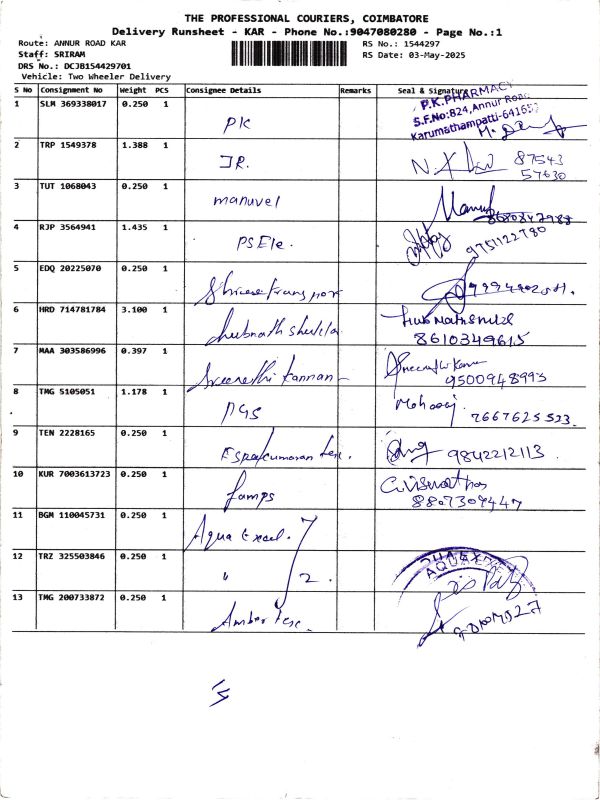 THE PROFESSIONAL COURIERS, COIMBATORE
Delivery Runsheet - KAR - Phone No.:9047080280 - Page No.:1
Route: ANNUR ROAD KAR
RS No.: 1544297
Staff: SRIRAM
RS Date: 03-May-2025
DRS No.: DCJB154429701
Vehicle: Two Wheeler Delivery
S No Consignment No Weight PCS Consignee Details Remarks Seal & Signature
1 SLM 369338017 0.250 1 PK P.K.PHARMACY
S.F.No:824,Annur Road
Karumathampatti-641657
2 TRP 1549378 1.388 1 JR. 87543
57630
3 TUT 1068043 0.250 1 manuvel Manuel
8680847988
4 RJP 3564941 1.435 1 PSEle. 9751122780
5 EDQ 20225070 0.250 1 Shreee transport
6 HRD 714781784 3.100 1 Shubnath shukla
8610349615
7 MAA 303586996 0.397 1 Sreenethi kannan
9500948993
8 TMG 5105051 1.178 1 PGS Mohanraj
7667625523.
9 TEN 2228165 0.250 1 Espee kumaran tex. 9842212113
10 KUR 7003613723 0.250 1 famps C.Viswanathan
8807309447
11 BGM 110045731 0.250 1 Aqua Excel.
12 TRZ 325503846 0.250 1 " 2. AQUA EXCEL
13 TMG 200733872 0.250 1 Amber tex.